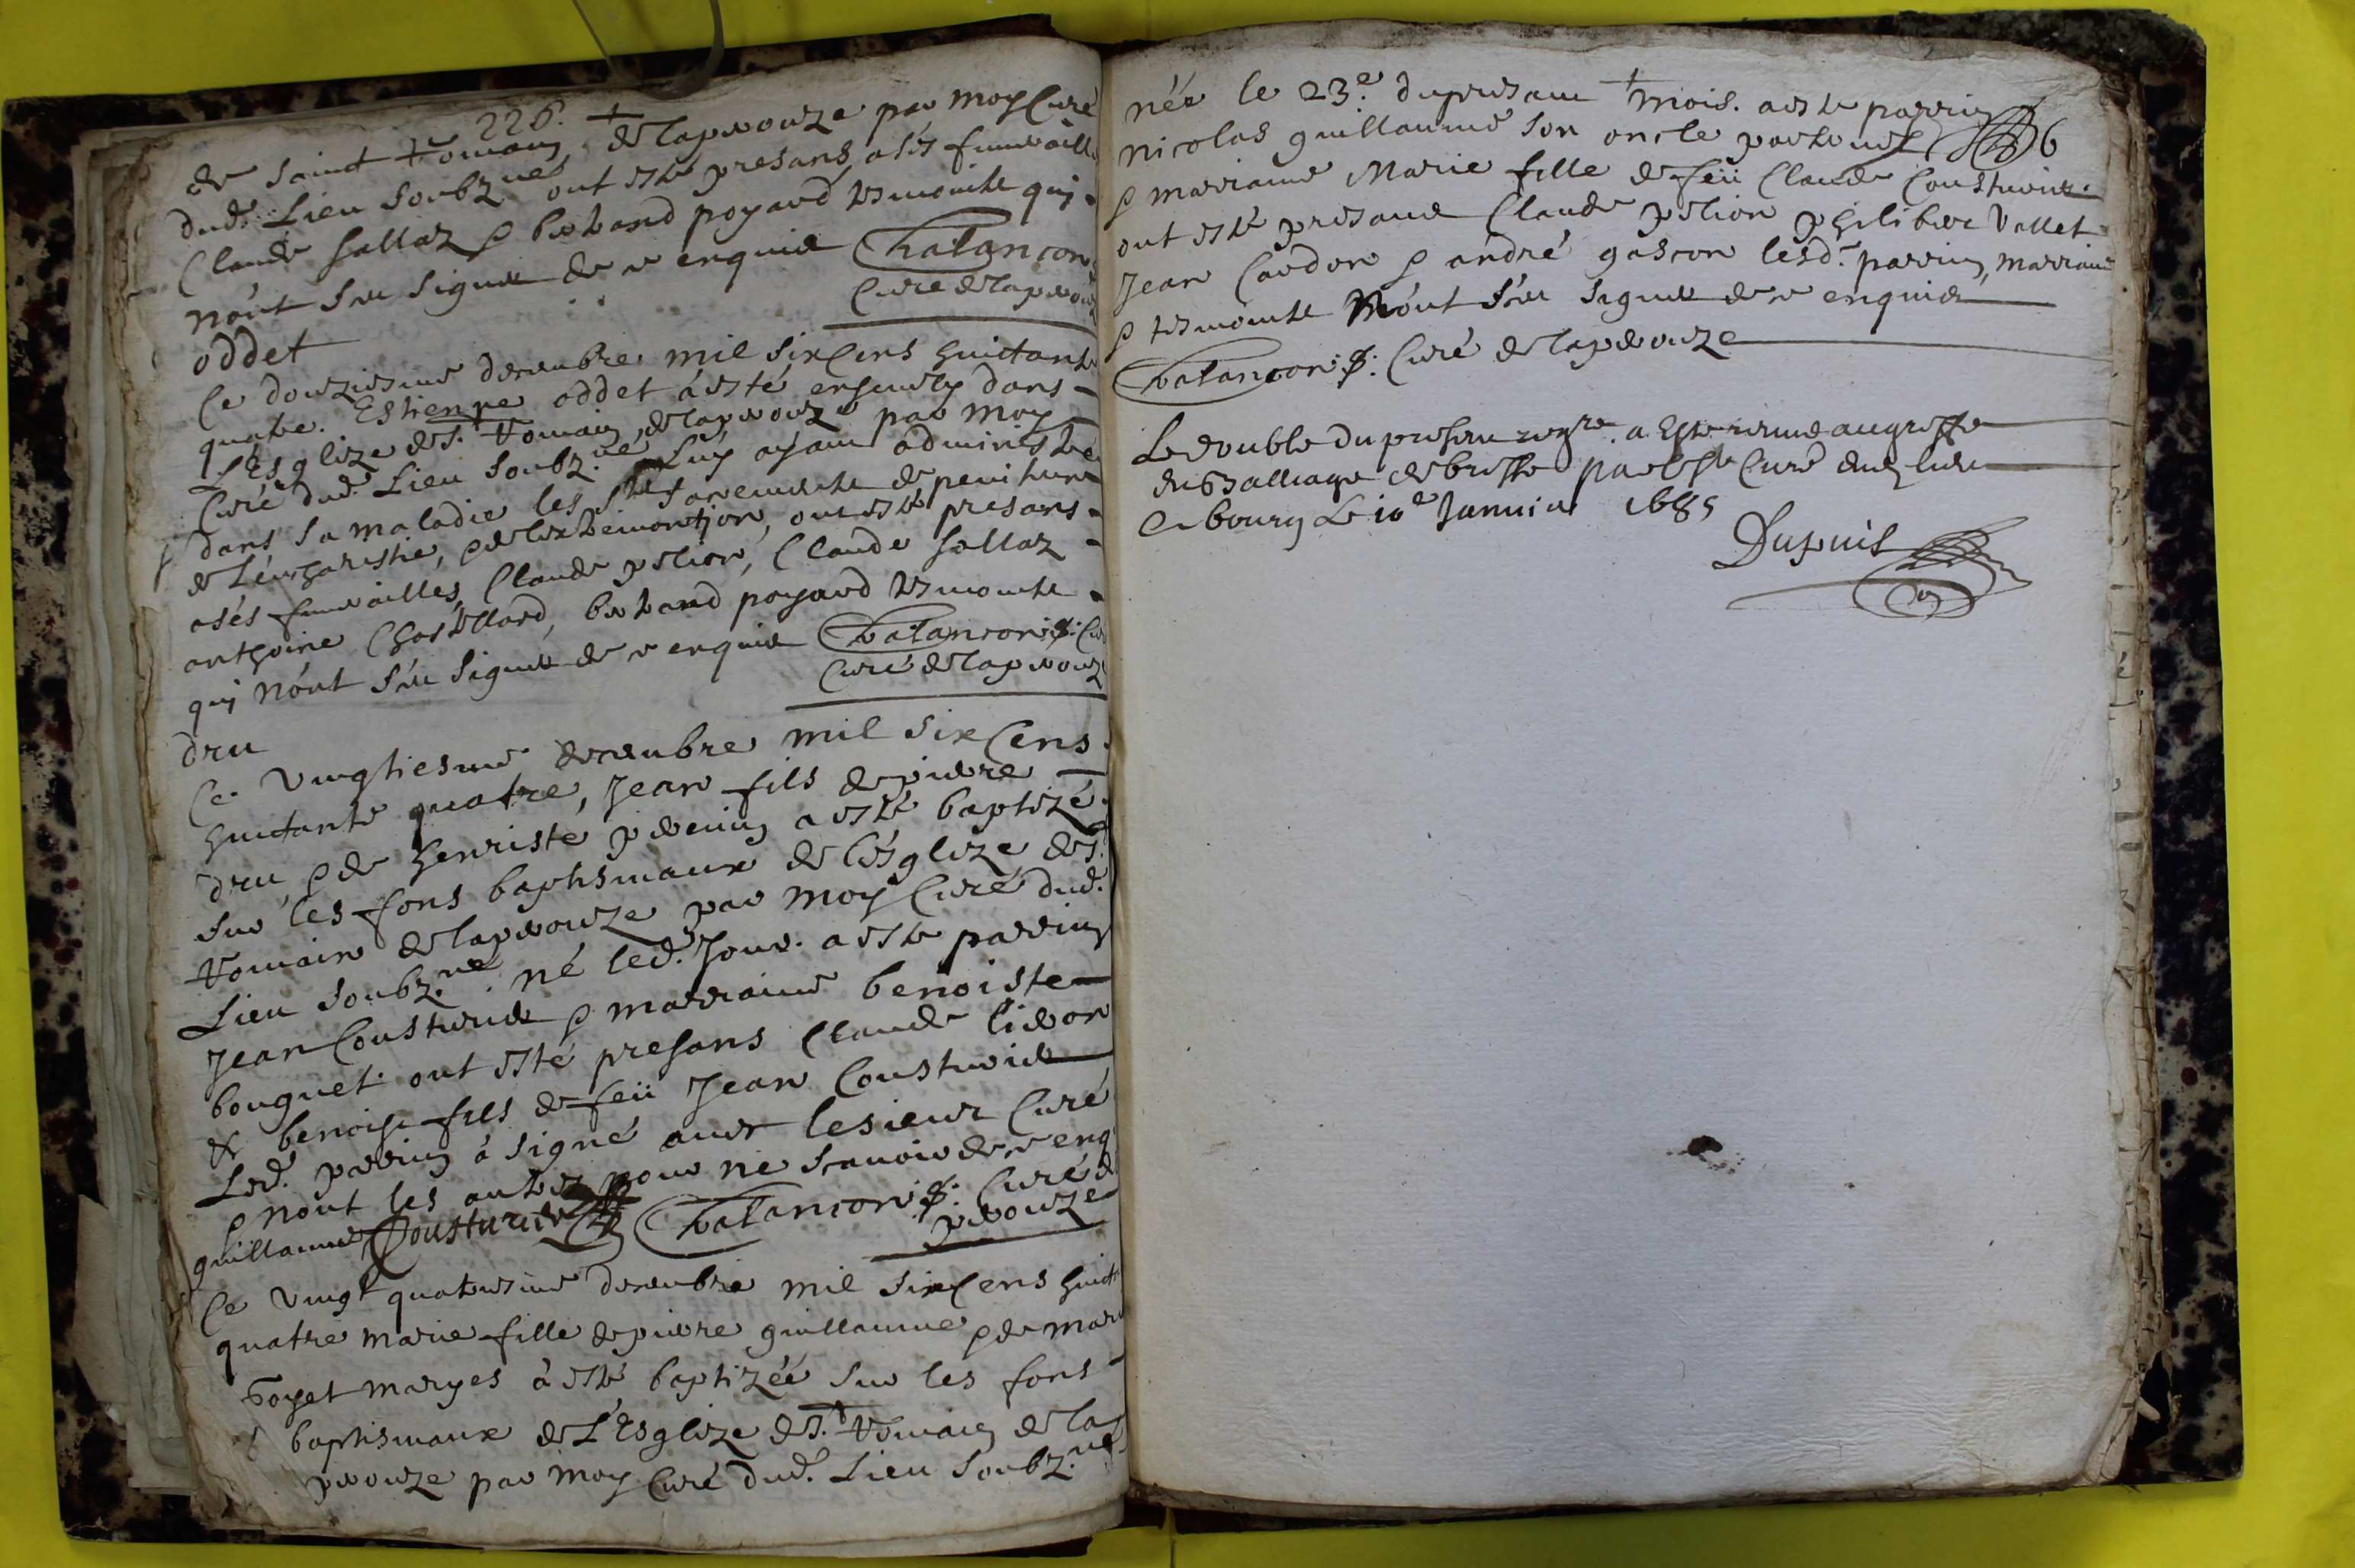 226. +
de saint romain de laperouze par moy Curé
dud. Lieu soubz.né ont esté presans a ses funerailles
Claude sallaz & bertrand poyard tesmoints qui
n'ont sceu signer de ce enquis Chatancon
Curé de laperouze
oddet
Ce douziesme decembre mil six Cens huictante
quatre. Estienne oddet a esté ensevely dans
L'Esglize de st. romain de laperouze par moy
Curé dud. Lieu soubz.né Luy ayant administré
dans sa maladie les sts sacrements de penitence
de L'eucharistie, & de lextremontion, ont esté presans
a ses funerailles, Claude pelion, Claude sallaz
anthoine Chastellard, bertrand poyard tesmoints
qui n'ont sceu signer de ce enquis Chatancon p. Curé
Curé de laperouz
dru
Ce vingtiesme decembre mil six Cens
huictante quatre, Jean fils de pierre
dru, & de henriste perenin a esté baptizé
sur les fons baptismaux de l'esglize de st.
romain de laperouze par moy Curé dud.
Lieu soubz.né. né led. Jour. a esté parrin
Jean Cousturier & marraine benoiste
bouguet. ont esté presans Claude lieron
& benoist fils de feü Jean Cousturier
Led. parrin a signé avec le sieur Curé
& nont les autres pour ne scavoir de ce enq
guillaume Cousturier Chatancon p. Curé de
perouze
Ce vingt quatresme decembre mil six Cens huict
quatre marie fille de pierre guillaume & de marie
voyet maryes à esté baptizéé sur les fons
baptismaux de L'Esglize de st. romain de la
perouze par moy Curé dud. Lieu soubz.né
néé le 23.e du presant mois. a esté parrin
nicolas guillaume son oncle paternel
& marraine Marie fille de feü Claude Cousturier.
ont esté presans Claude pelion philibert vallet
Jean Cardon & andré gascon lesd. parrin, marraine
& tesmoints N'ont sceu signer de ce enquis
Chatancon p. Curé de laperouze
Le double du present regre. a Esté remis au greffe
du Balliage de bresse par le Sr Curé dud lieu
A bourg Le 10e Janvier 1685
Dupuis